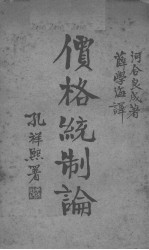 河合良成著
薛學海譯
價格統制論
孔祥熙署